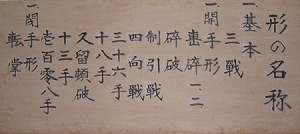 形の名称
一、基本
三戰
一、開手形
撃砕 一、二
砕破
制引戰
四向戰
三十六手
十八手
久留頓破
十三手
壱百零八手
一、閉手形
転掌